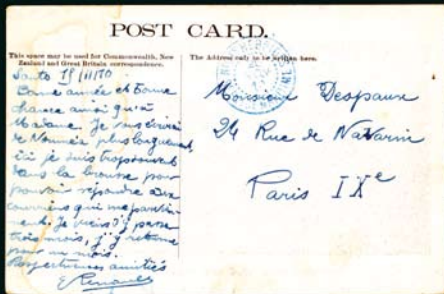 POST CARD.
This space may be used for Commonwealth, New
Zealand and Great Britain correspondence.
The Address only to be written here.
Santo
Bonne année et bonne
chance ainsi qu'à
Madame. Je vous écrirai
de Nouméa plus longuement,
ici je suis trop souvent
dans la brousse pour
pouvoir répondre aux
courriers qui me parvien-
nent. Je viens d'y passer
trois mois, j'y retourne
pour un mois.
Respectueuses amitiés
Monsieur Despaux
24 Rue de Navarin
Paris IXe